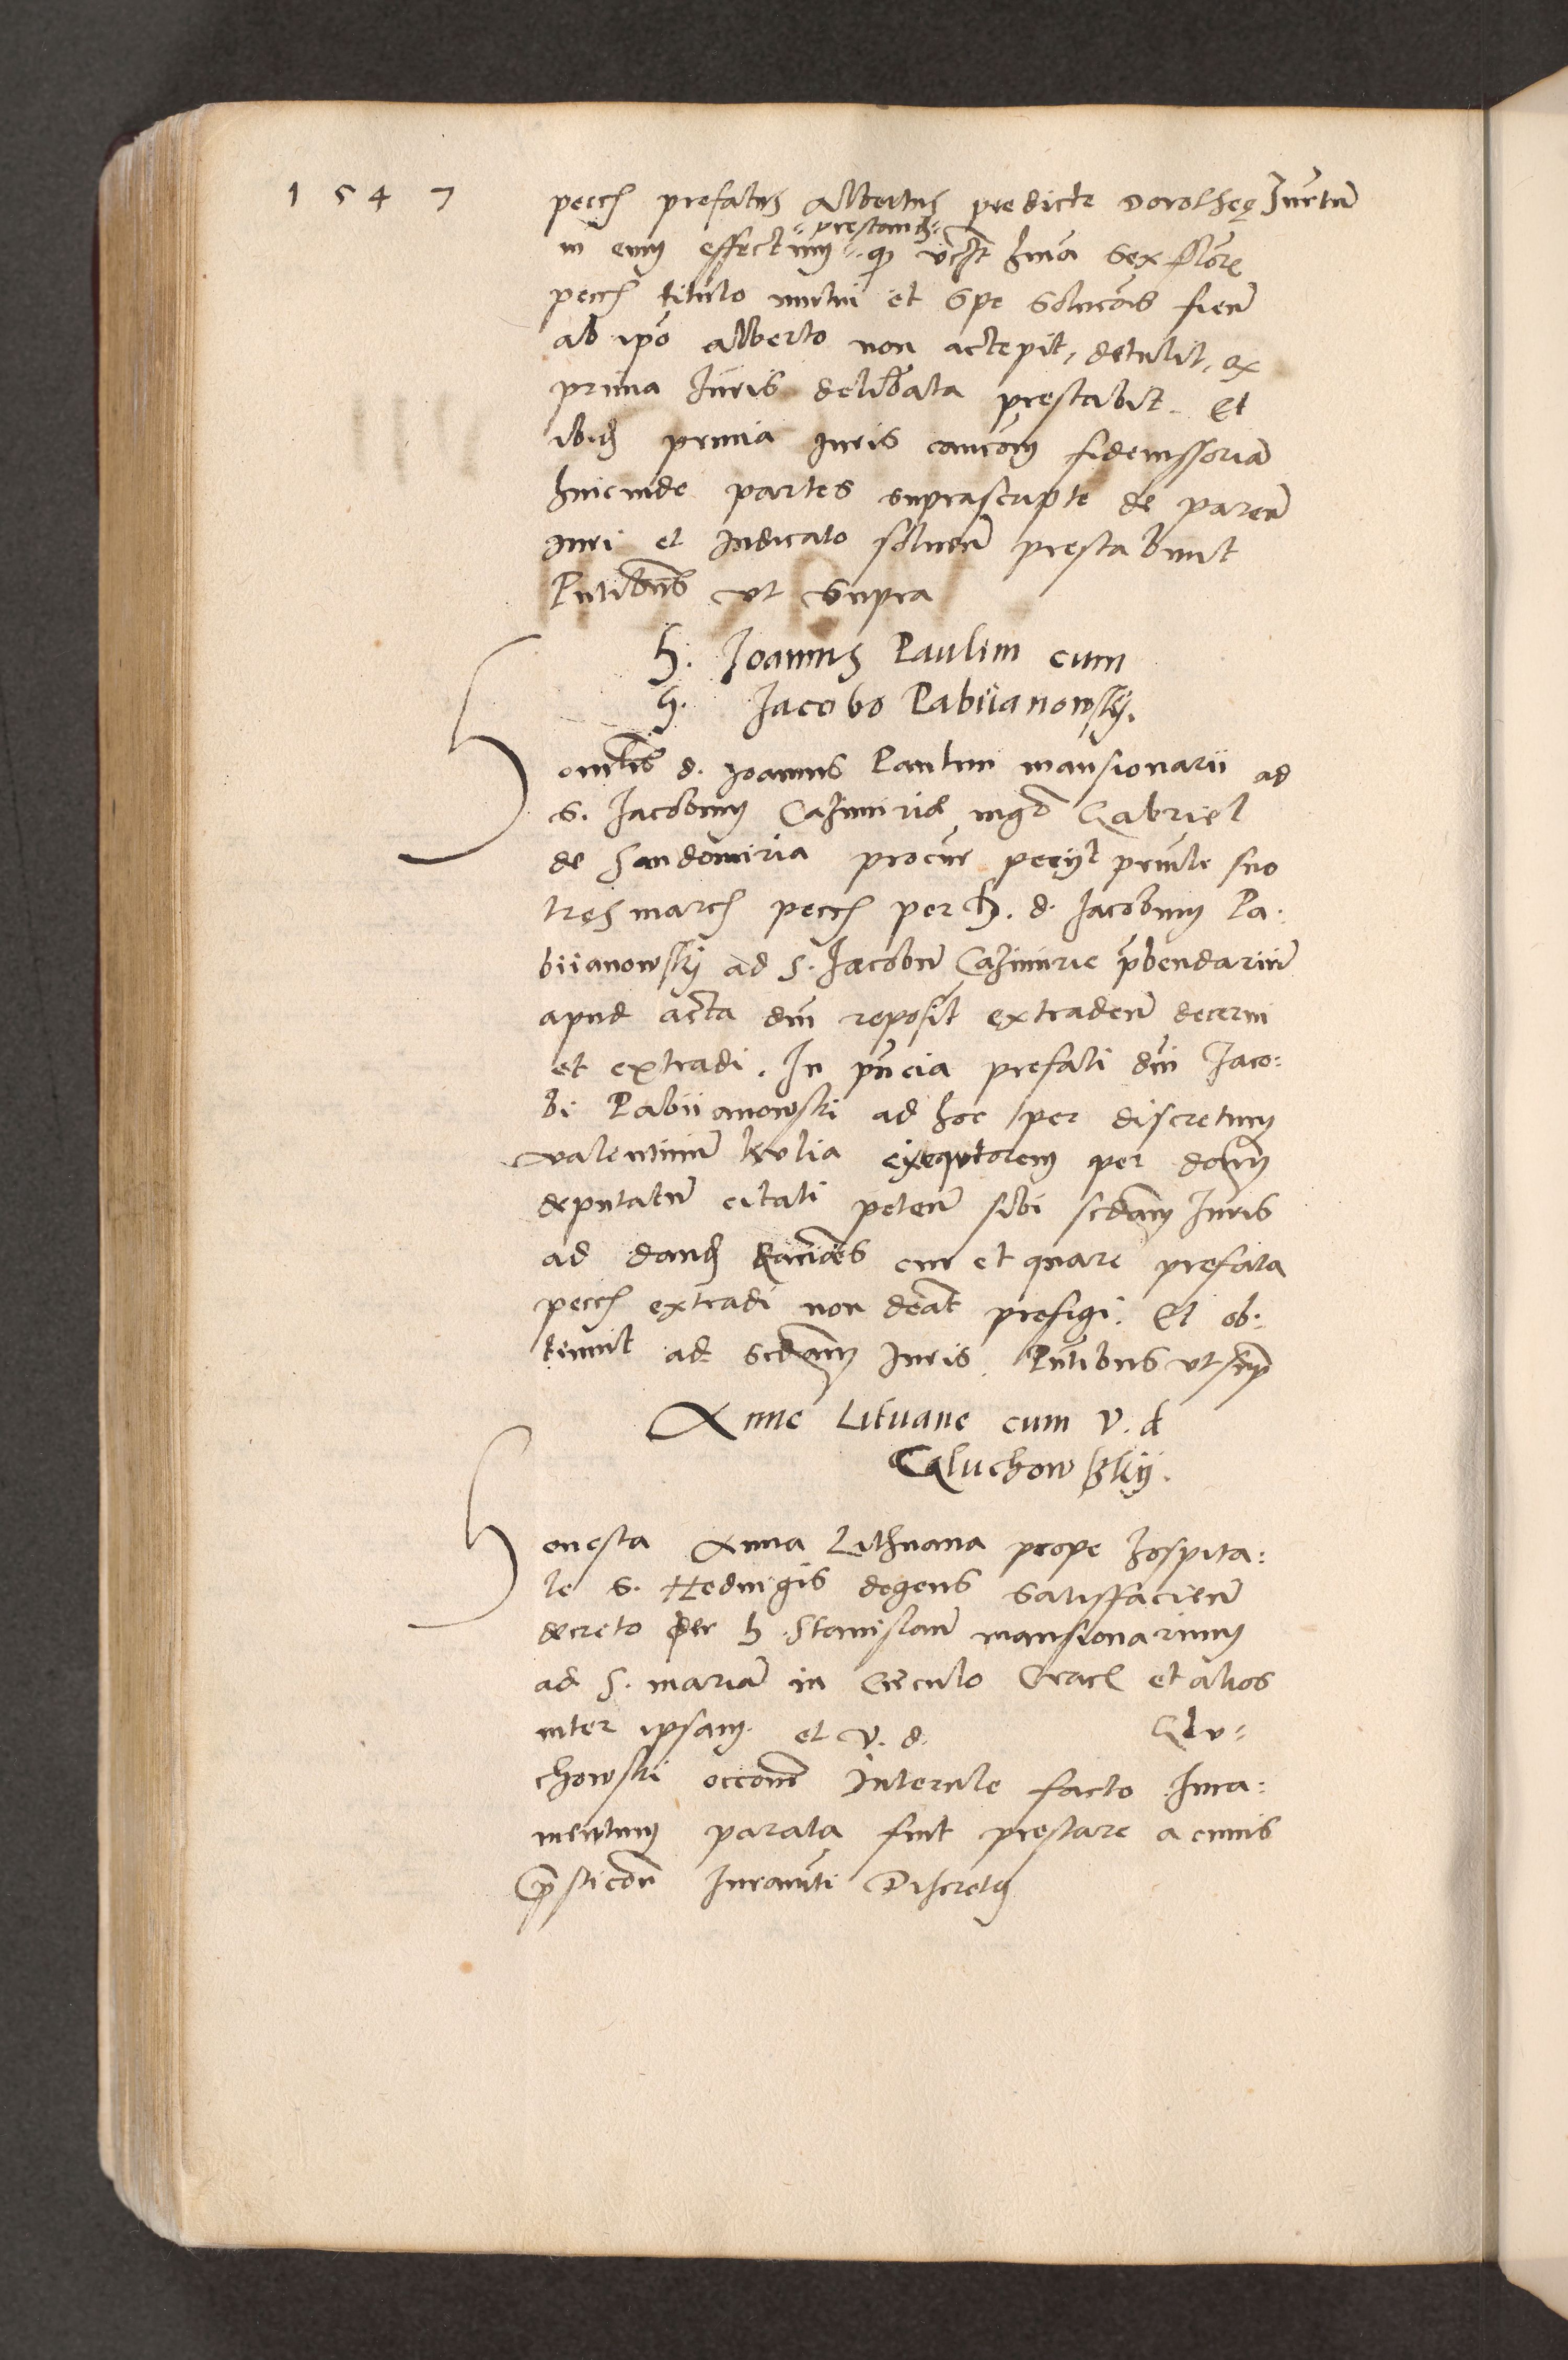 1 5 4 7
pecc prefatus Albertus predicte Dorotheę Iurtum
prestand
in eum effectum q huiusmodi sex flore
pecc titulo mutui et spe solucois fiend
ab ipo Alberto non accepit, detulit, ex
prima Iuris delibata prestabit. Et
ibid prima Iuris caucom fideiussoriam
hincinde partes suprascripte de parend
Iuri et Iudicato soluend prestabunt
Pntibus vt supra
h. Joannis Paulini cum
h. Jacobo Pabiianowskij.
Honlis d. Joannis Paulini mansionarii ad
S. Jacobum Cazimiriae mgr Gabriel
de Sandomiria procur peciit prnle suo
tres marc pecc per h. d. Jacobum Pa:
biianowskij ad S. Jacobum Cazimirie pbendarium
apud acta dni reposit extradend decerni
et extradi. In pncia prefati dni Jaco:
bi Pabiianowski ad hoc per discretum
valentinum kulia exequtorem per dnm
deputatum citati petend sibi scdam Iuris
ad dand Racioes cur et quare prefata
pecc extradi non deat prefigi. Et ob:
tinuit ad scdam Iuris. Pntibus vt sup
Anne Lituane cum v. d
Gluchowskij.
Honesta Anna Lithuana prope hospita:
le S. Heduigis degens satisfaciend
decreto per h Stanislaum mansionarium
ad S. mariam in Circulo Crac et alios
inter ipsam et v. d. Glu=
chowski occone Interule facto Iura:
mentum parata fuit prestare a cuius
psticone Iuramti Discretus